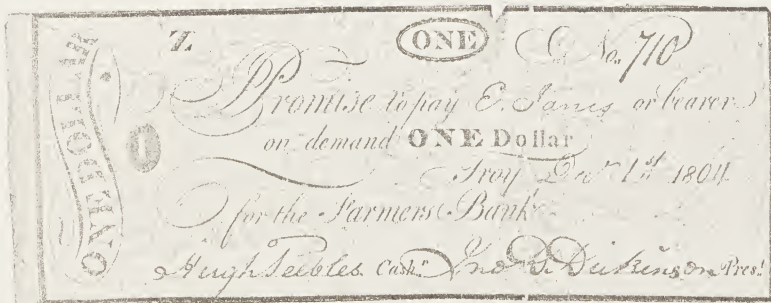 ONE DOLLAR
Z ONE No. 710
I
Promise to pay E. Janes or bearer
on demand ONE Dollar
Troy Decr 1st 1804
for the Farmers Bank
Hugh Peebles Cashr. Jno. D. Dickinson Prest.